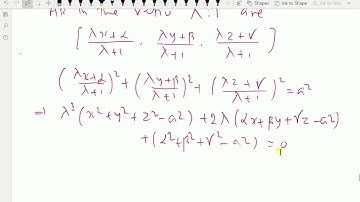 AR in the ratio λ:1 are
[ (λx+α)/(λ+1), (λy+β)/(λ+1), (λz+γ)/(λ+1) ]
((λx+α)/(λ+1))² + ((λy+β)/(λ+1))² + ((λz+γ)/(λ+1))² = a²
⇒ λ²(x²+y²+z²-a²) + 2λ(αx+βy+γz-a²)
+(α²+β²+γ²-a²) = 0